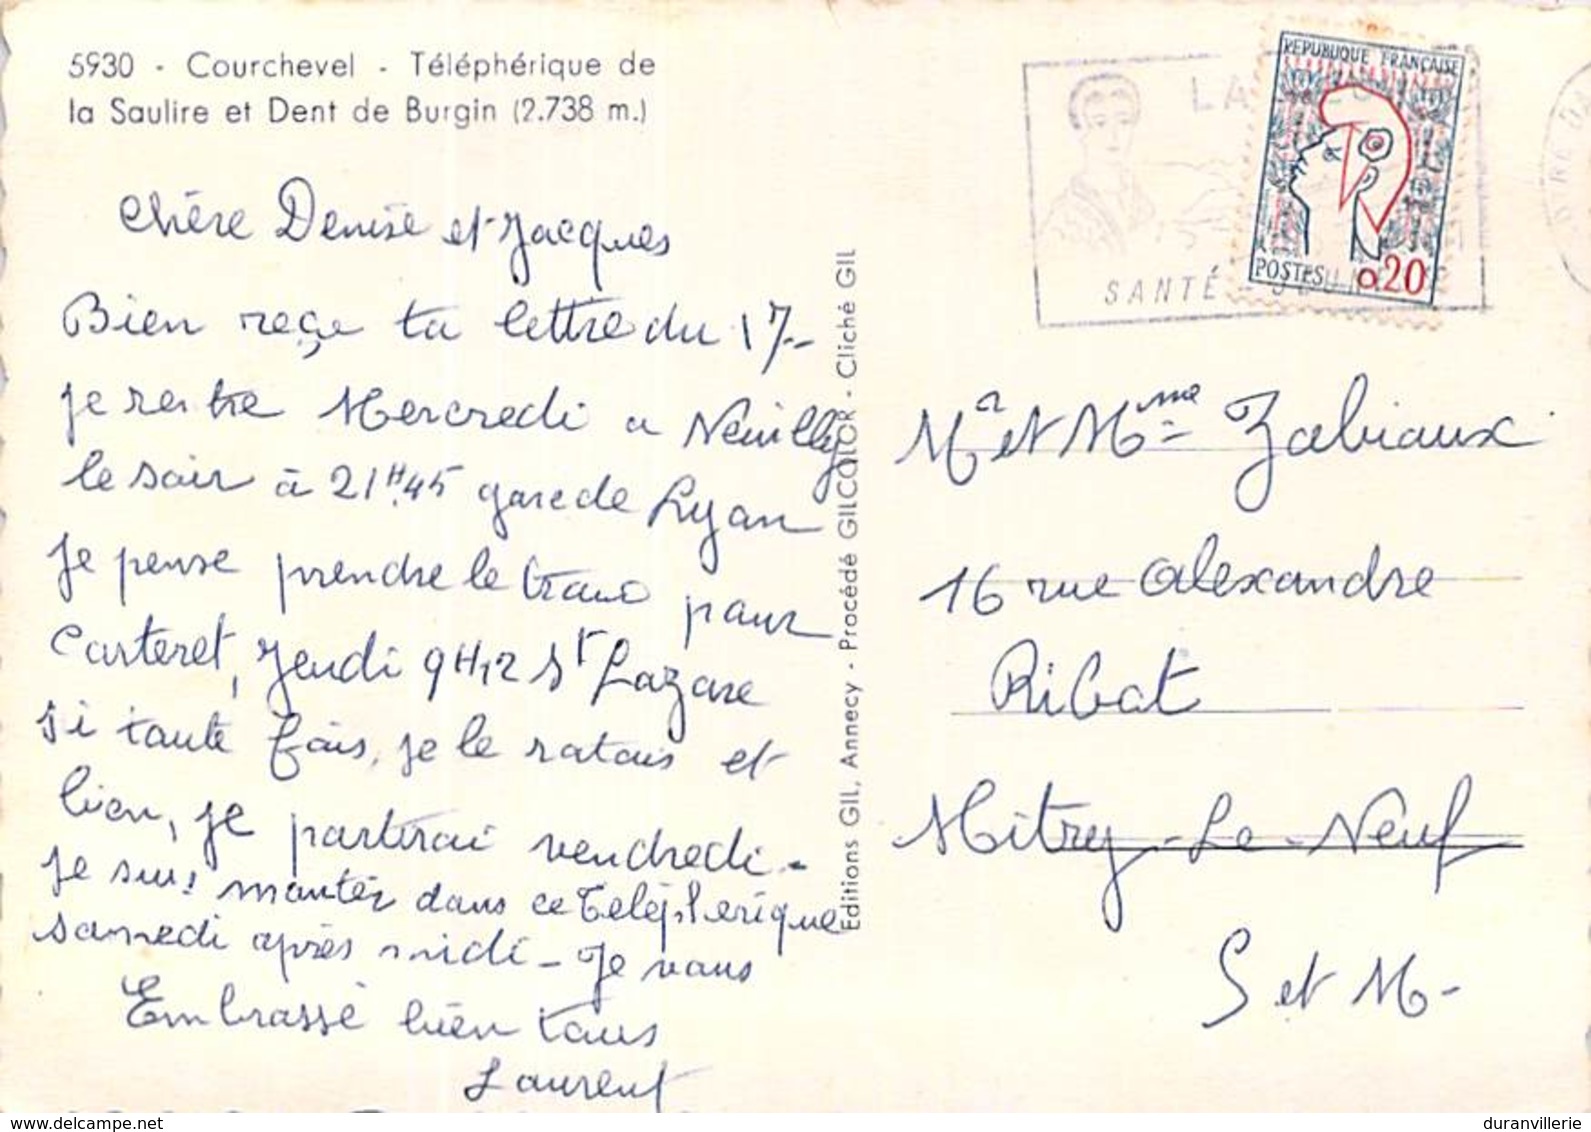 5930 - Courchevel - Téléphérique de
la Saulire et Dent de Burgin (2.738 m.)
Chère Denise et Jacques
Bien reçe ta lettre du 17-
je rentre Mercredi a Neuilly
le soir à 21H45 gare de Lyon
Je pense prendre le train pour
Carteret, Jeudi 9H12 St Lazare
si toute fois, je le ratais et
bien, je partirai vendredi-
je suis montér dans ce Téléphérique
samedi après midi - Je vous
Embrasse bien tous
Laurent
Editions GIL, Annecy - Procédé GILCOLOR - Cliché GIL
REPUBLIQUE FRANÇAISE
POSTES 0,20
LA
SANTÉ
Mr et Mme Zabiaux
16 rue Alexandre
Ribot
Mitry-Le-Neuf
S et M-
www.delcampe.net
duranvillerie